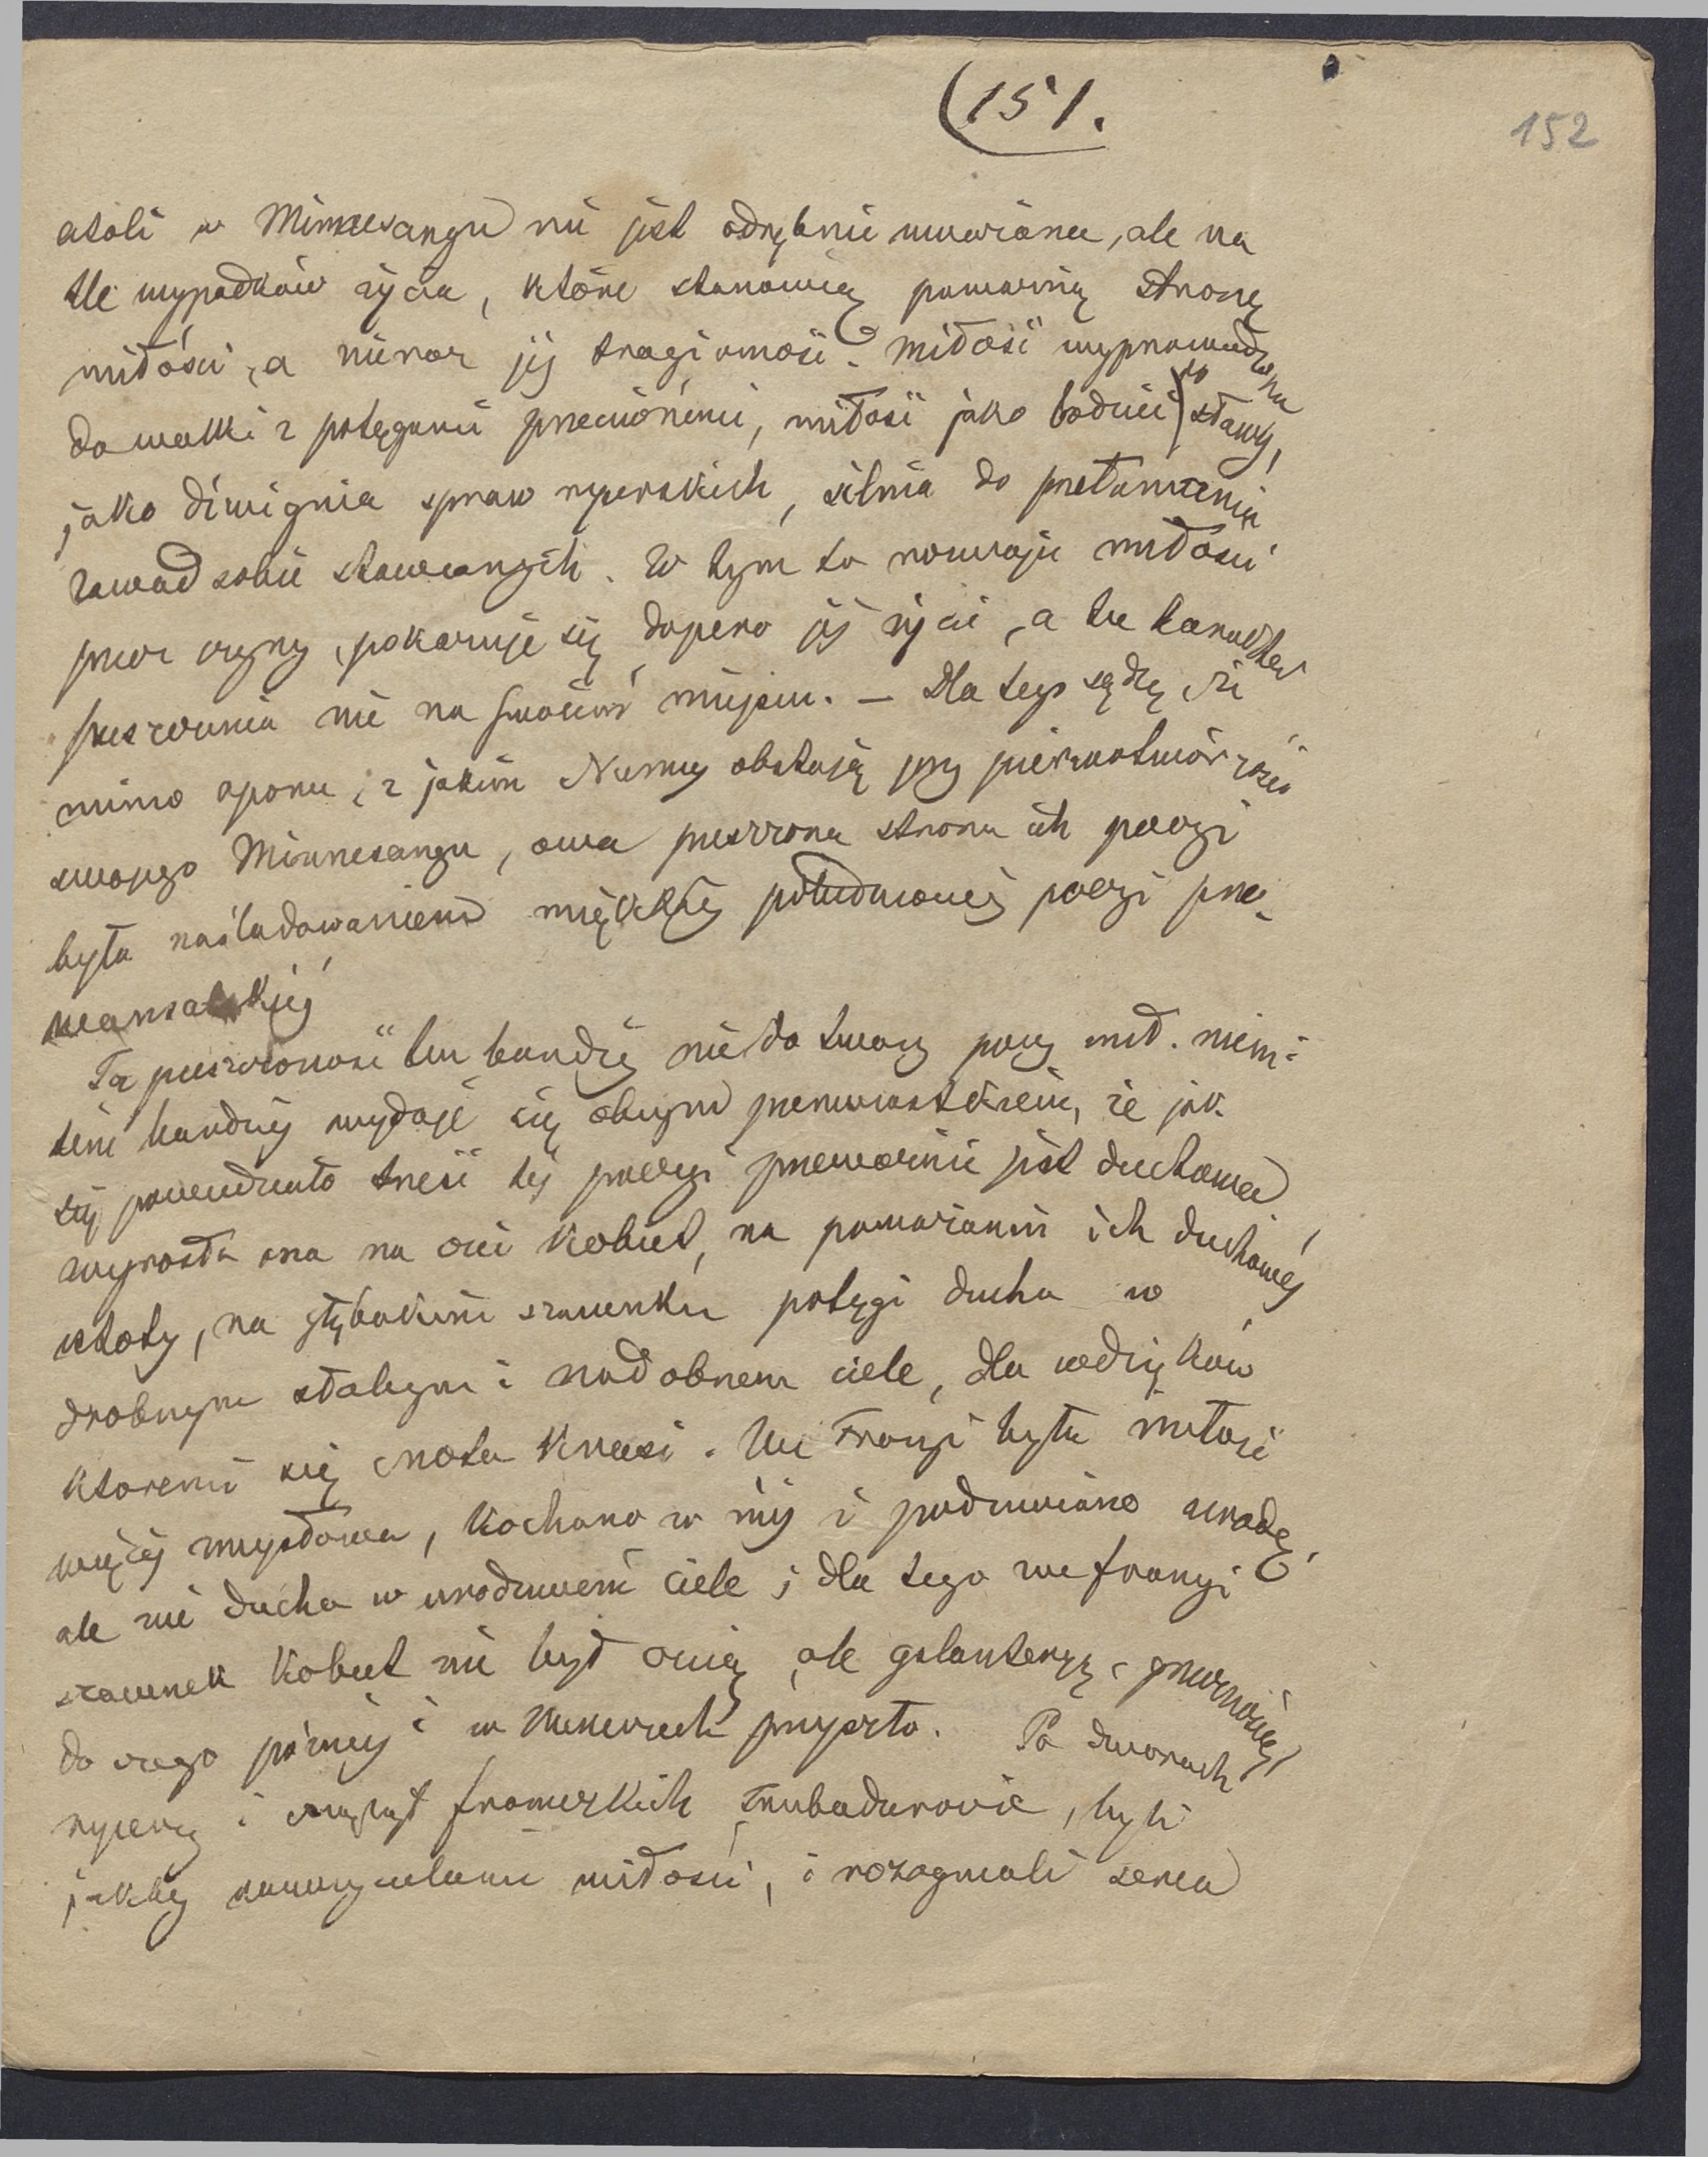 (151.
152
atoli w Minnesangu nie jest odrębnie uważana, ale na
tle wypadków życia, które stanowią poważną stronę
miłości, a nieraz jéj tragiczność. Miłość wyprowadzona
do walki z potęgami przeciwnemi, miłość jako bodziec do sławy,
jako dźwignia spraw rycerskich, silna do przełamania
zawad sobie stawianych. W tym to rozwoju miłości
przez czyny, pokazuje się dopiero jéj życie, a tu
pieszczenia nie na swoiém miejscu. – Dla tego sądzę, że
mimo uporu, z jakim Niemcy obstają przy pierwotwórczości
swojego Minnesangu, owa pieszczona strona ich poezyi
była naśladowaniem miękkiéj południowéj poezyi pro-
wansalskiéj
Ta pieszczoność tem bardziéj nie do twarzy poezyi niem:
tém bardziéj wydaje się obcym pierwiastkiem, że jak
się powiedziało treść téj poezyi przeważnie jest duchowa
wyrosła ona na czci kobiet, na poważaniu ich duchowéj
istoty, na głębokim szacunku potęgi ducha w
drobnym słabym i nadobnem ciele, dla wdzięków
któremi się cnota krasi. We Francyi była miłość
więcéj zmysłowa, kochano w niéj i podziwiano urodę,
ale nie ducha w urodziwem ciele; dla tego we francyi
szacunek kobiet nie był czcią, ale galanteryą i próżnością,
do czego późniéj i w Niemczech przyszło. Po dworach
rycerzy i francuzkich Trubadurowie, byli
jakby nauczycielami miłości, i rozagrzali serca